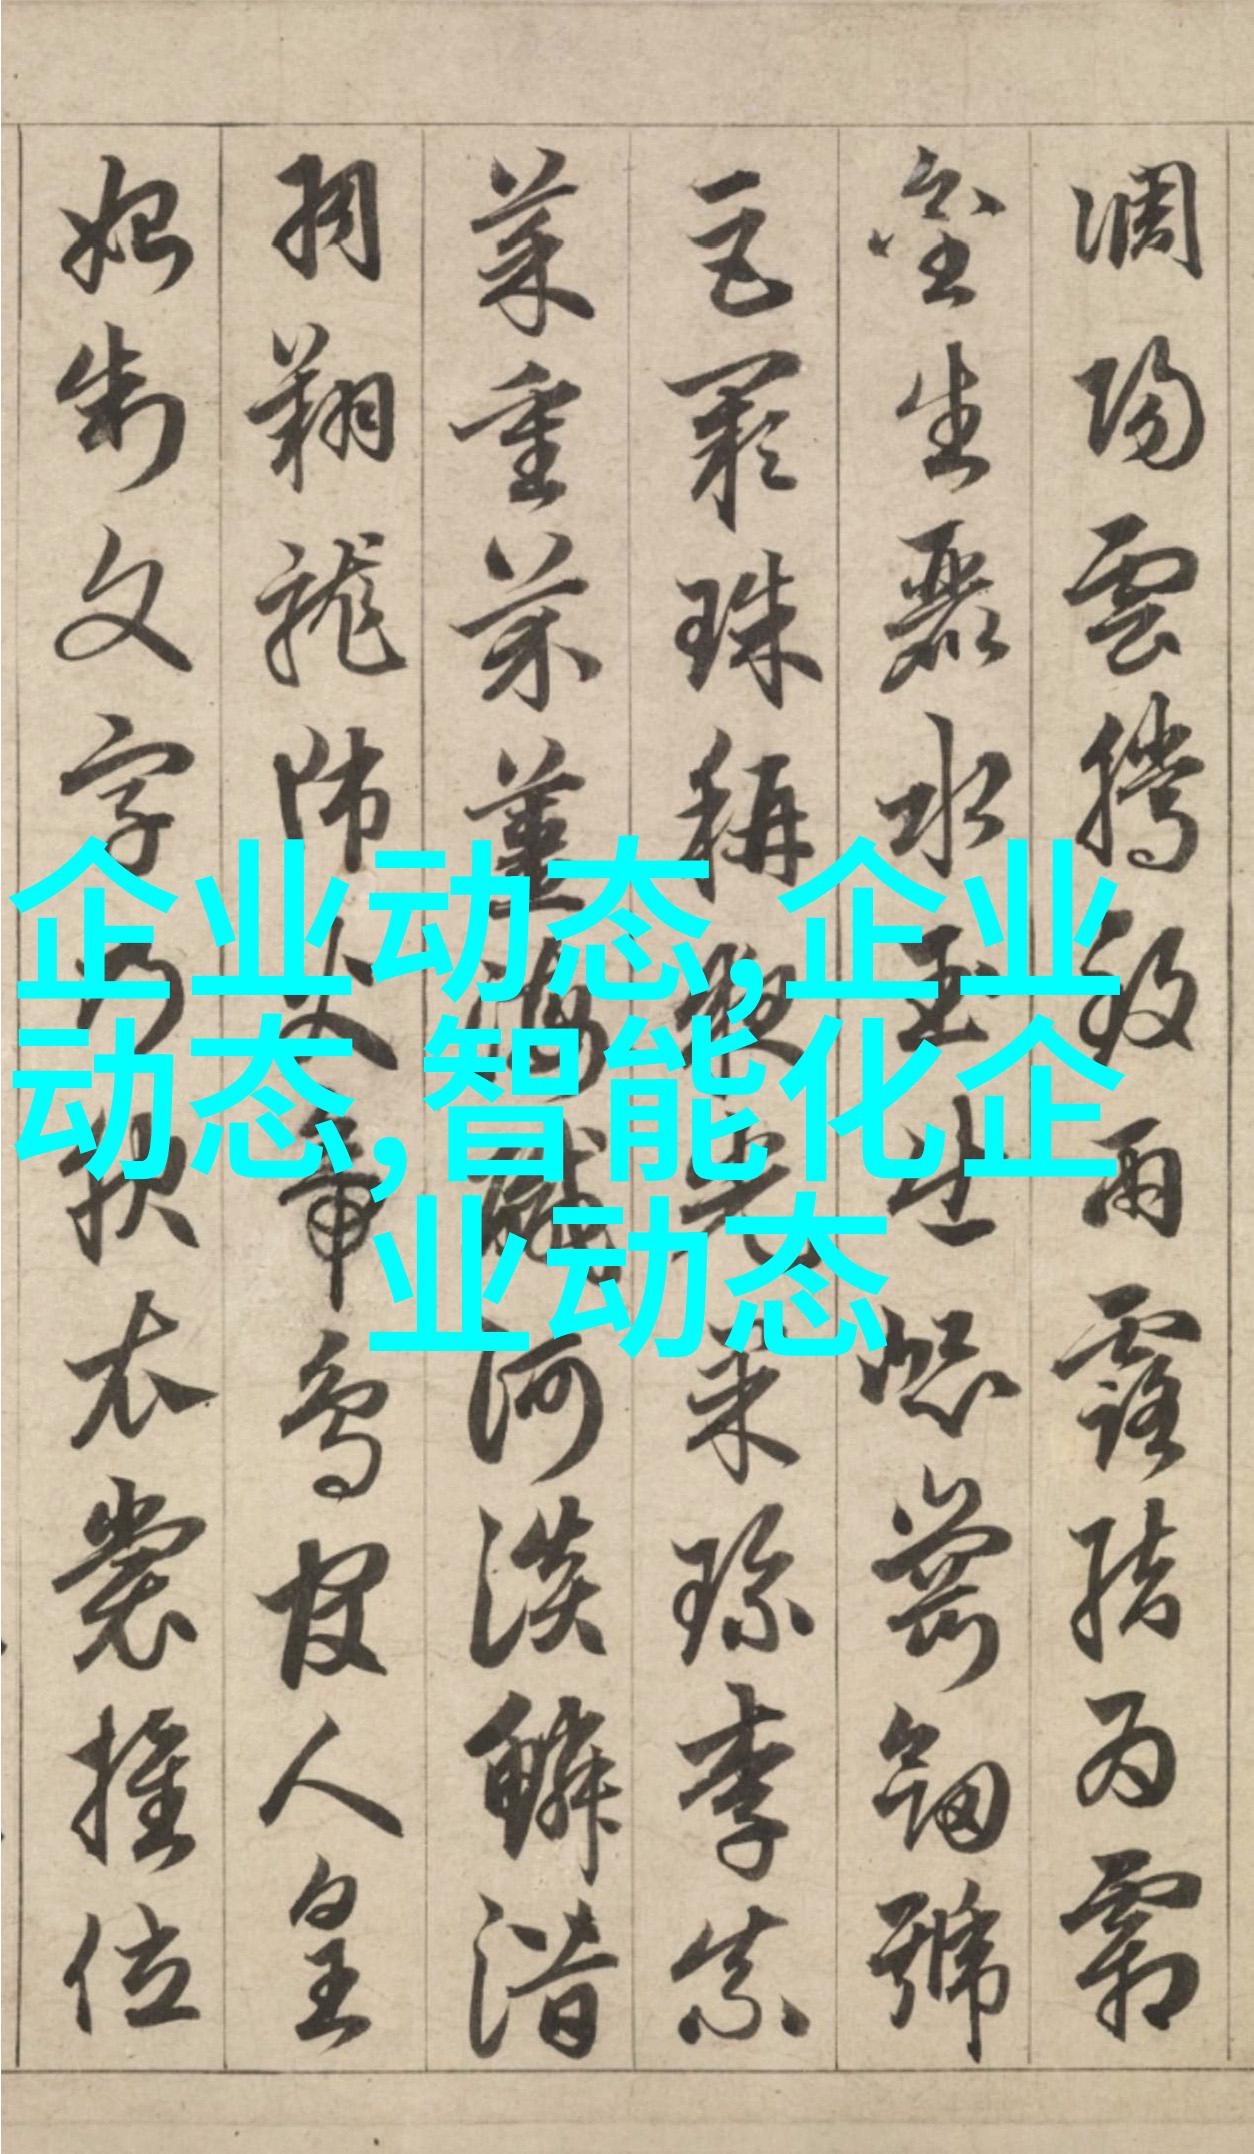 企业动态,企业
动态,智能化企
业动态
調陽雲騰致雨露結為霜
金生麗水玉出崑崗劒號
巨闕珠稱夜光果珎李柰
菜重芥薑海鹹河淡鱗潛
羽翔龍師火帝鳥官人皇
始制文字乃服衣裳推位